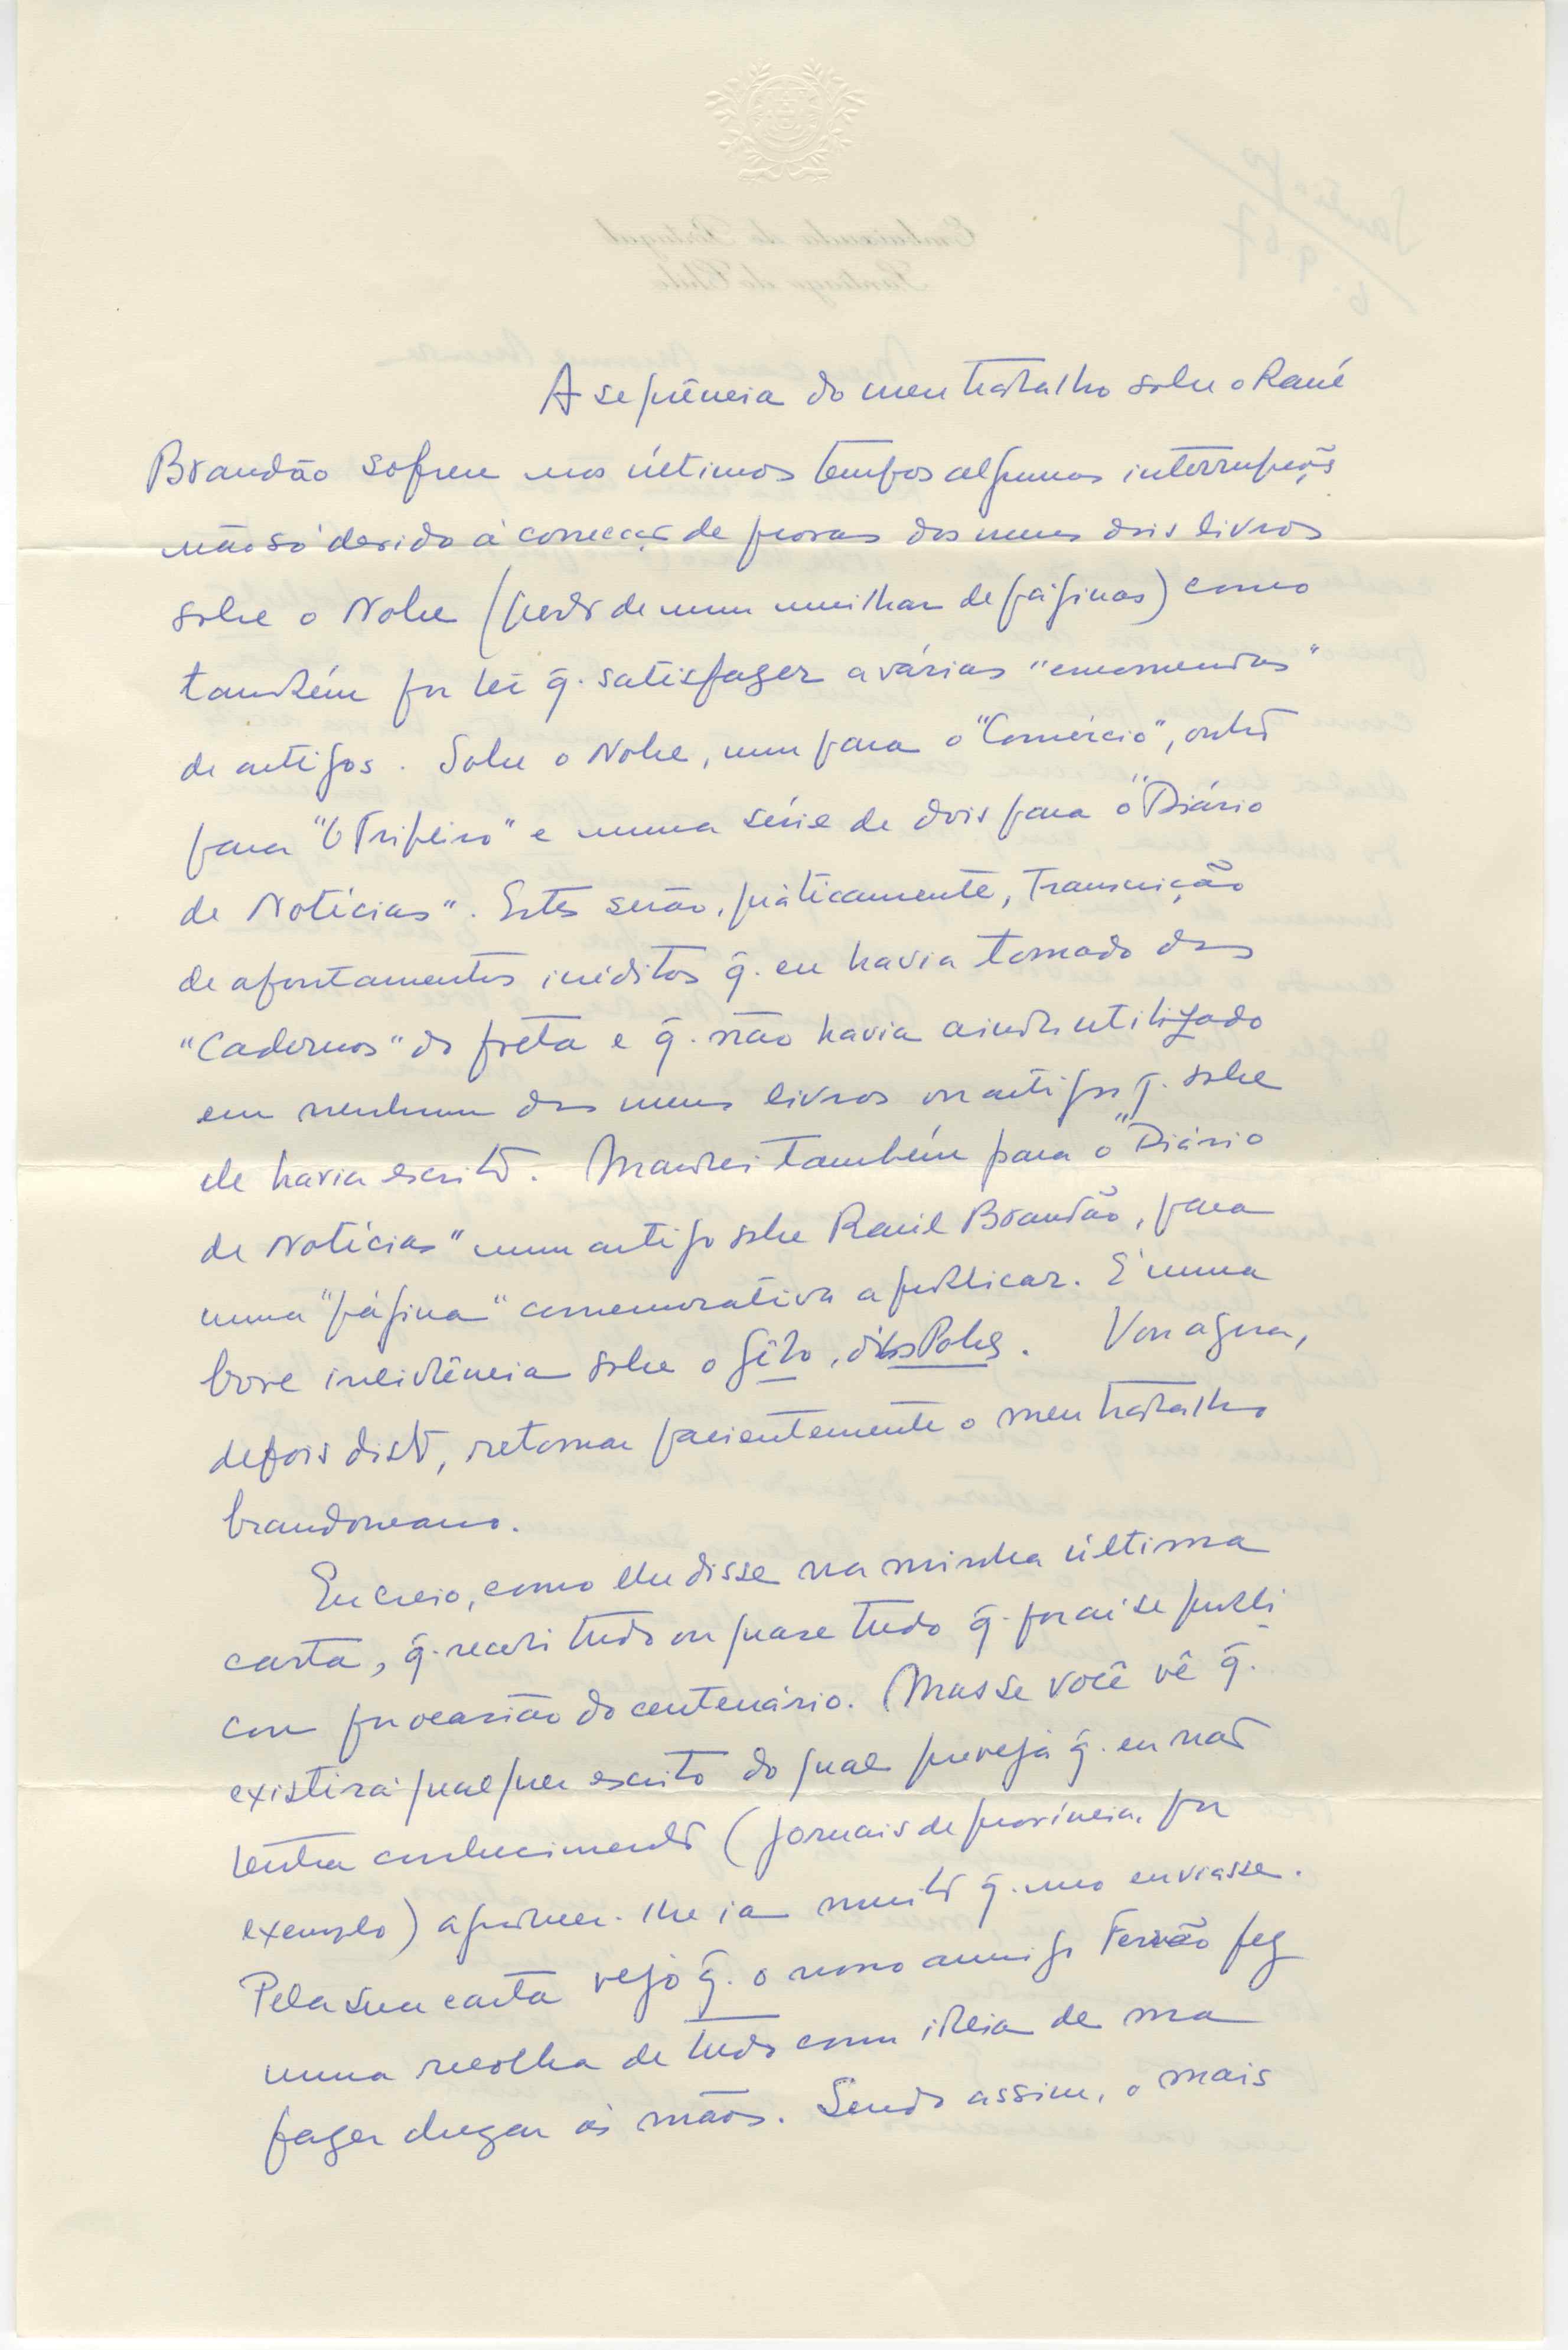 A sequência do meu trabalho sobre o Raúl
Brandão sofreu nos últimos tempos algumas interrupções
não só devido à correcção de provas dos meus dois livros
sobre o Nobre (perto de um milhar de páginas) como
também por ter q̃. satisfazer a várias "encomendas"
de artigos. Sobre o Nobre, um para o "Comércio", outro
para "O Tripeiro" e uma série de dois para o "Diário
de Notícias". Estes serão, pràticamente, transcrição
de apontamentos inéditos q̃. eu havia tomado dos
"Cadernos" do poeta e q̃. não havia ainda utilizado
em nenhum dos meus livros ou artigos q̃. sobre
ele havia escrito. Mandei também para o "Diário
de Notícias" um artigo sobre Raúl Brandão, para
uma "página" comemorativa a publicar. É uma
breve incidência sobre o Gêbo, dos Pobres. Vou agora,
depois disto, retomar pacientemente o meu trabalho
brandoneano.
Eu creio, como lhe disse na minha última
carta, q̃. recebi tudo ou quase tudo q̃. por aí se publi
cou por ocasião do centenário. Mas se você vê q̃.
existirá qualquer escrito do qual preveja q̃. eu não
tenha conhecimento (jornais de província, por
exemplo) agradecer-lhe-ia muito q̃. mo enviasse.
Pela sua carta vejo q̃. o nosso amigo Ferrão fez
uma recolha de tudo com ideia de ma
fazer chegar às mãos. Sendo assim, o mais